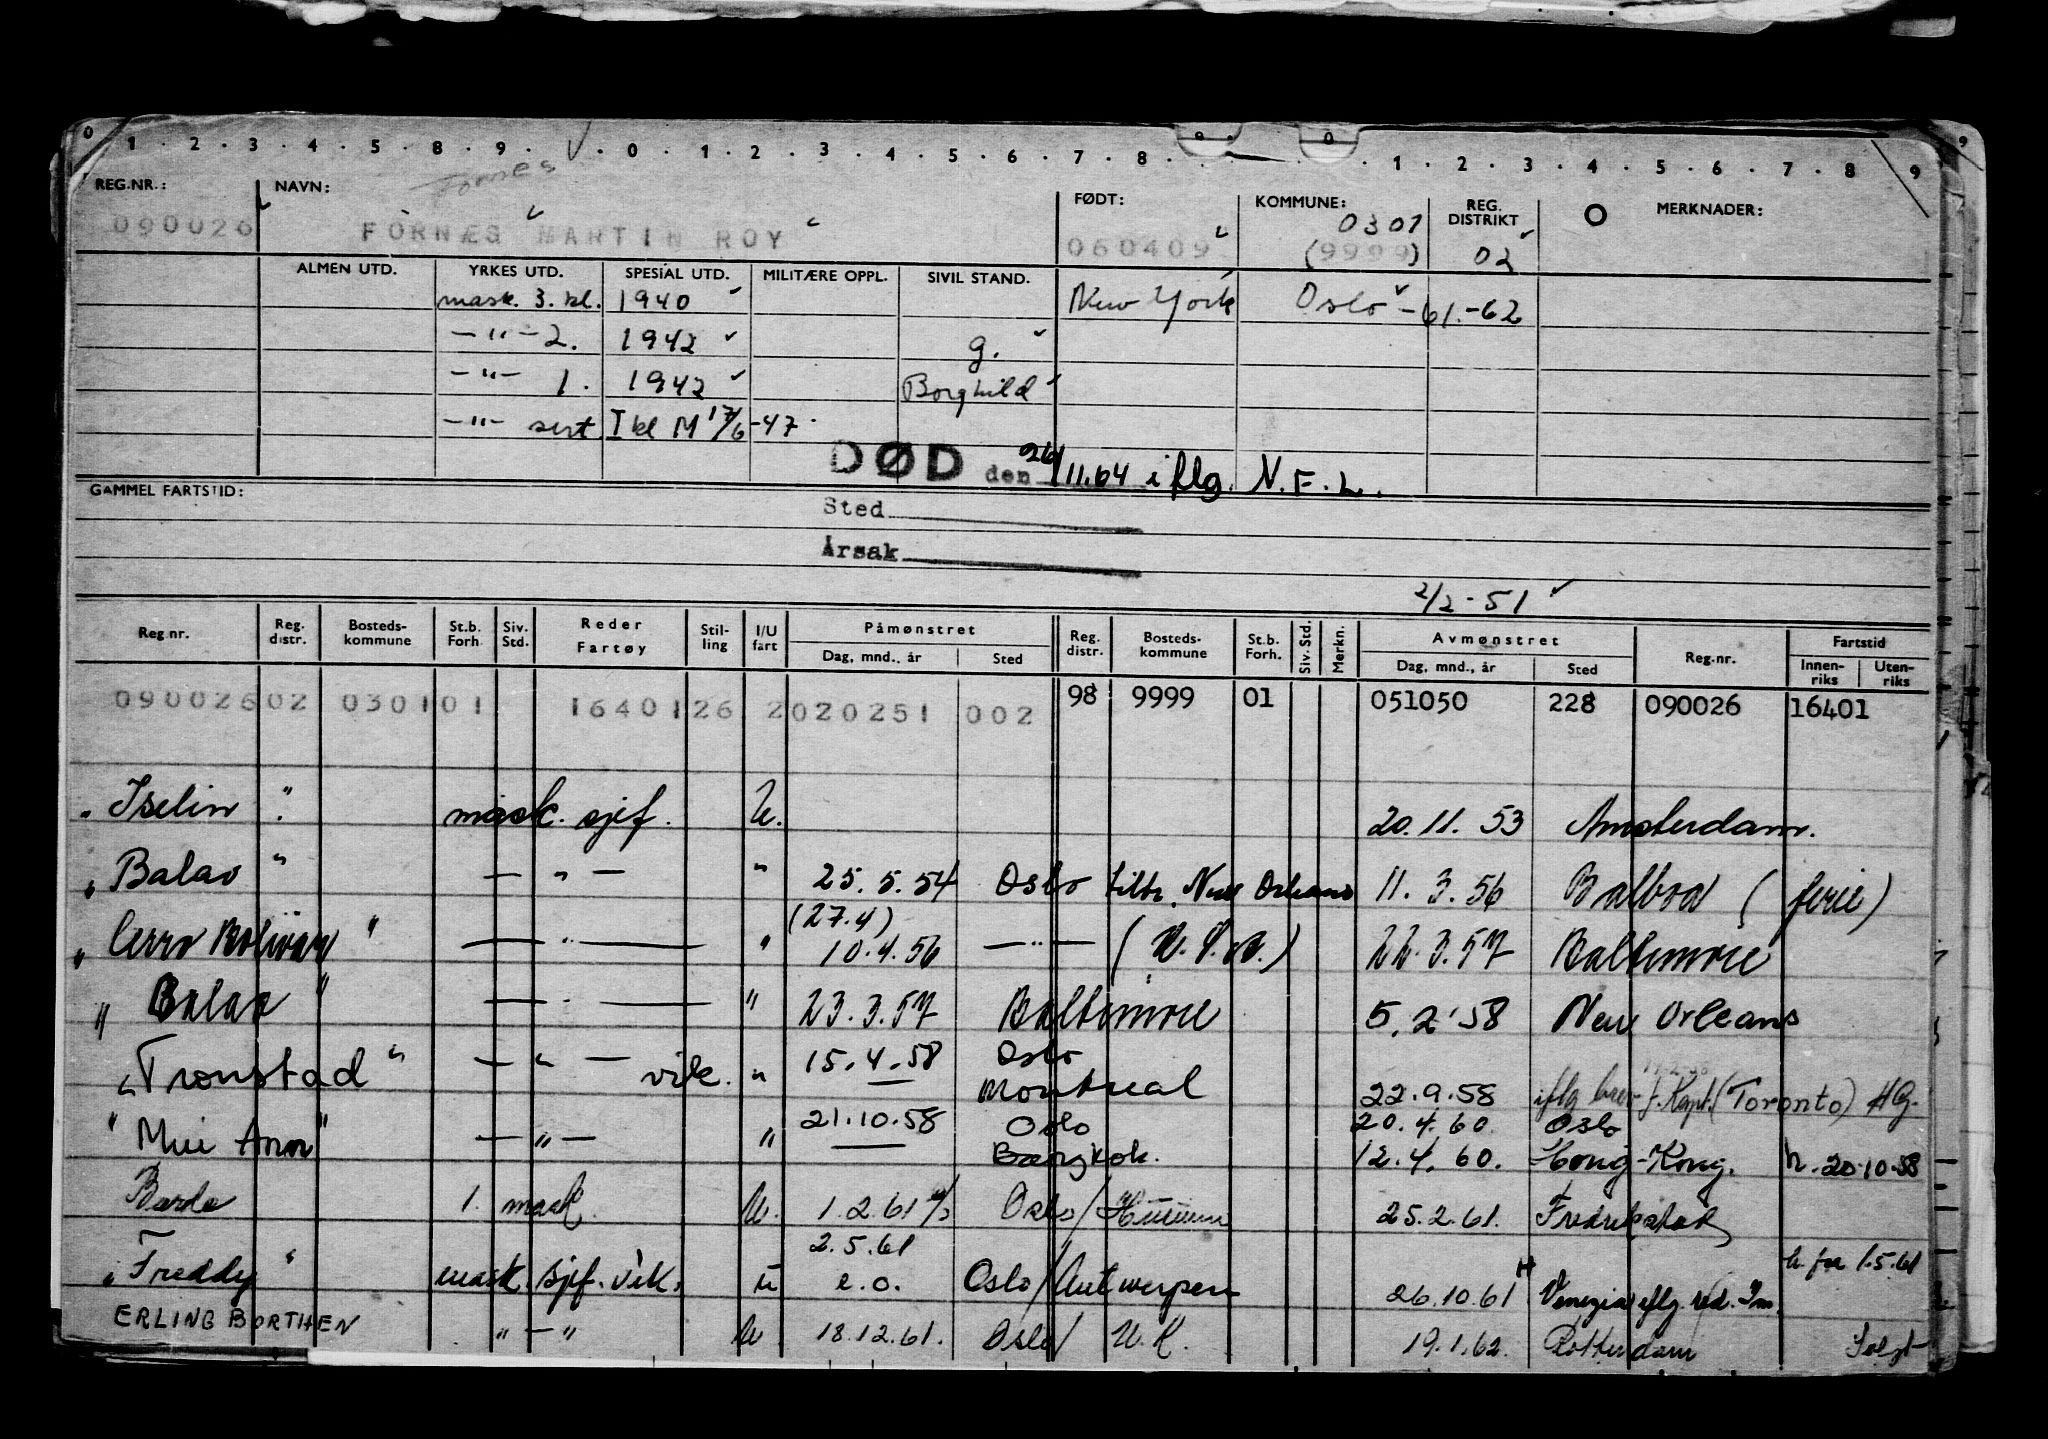 0 1 . 2 . 3 . 4 . 5 . 8 . 9 . . 0 . 1 . 2 . 3 . 4 . 5 . 6 . 7 . 8 . 9 0 . 1 . 2 . 3 . 4 . 5 . 6 . 7 . 8 . 9
Fornes
REG.NR.: NAVN: FØDT: KOMMUNE: REG. DISTRIKT O MERKNADER:
090026 FORNÆS MARTIN ROY 060409 0301 (9999) 02
ALMEN UTD. YRKES UTD. SPESIAL UTD. MILITÆRE OPPL. SIVIL STAND.
mask. 3. kl. 1940 New York Oslo -61.-62
—"— 2. 1942 g.
—"— 1. 1942 Borghild
—"— sert. I kl M 17/6-47.
DØD den 26/11.64 iflg. N.F.L.
GAMMEL FARTSTID:
Sted
Årsak
2/2-51
Reg.nr. Reg. distr. Bosteds-kommune St.b. Forh. Siv. Std. Reder Fartøy Stil-ling I/U fart Påmønstret Reg. distr. Bosteds-kommune St.b. Forh. Siv. Std. Merkn. Avmønstret Reg.nr. Fartstid
Dag, mnd., år Sted Dag, mnd., år Sted Innen-riks Uten-riks
090026 02 0301 01 16401 26 2 020251 002 98 9999 01 051050 228 090026 16401
" Iselin " mask. sjef. U. 20.11.53 Amsterdam.
" Balao " — " — " 25.5.54 Oslo tiltr. New Orleans 11.3.56 Balboa (ferie)
(27.4)
" Cerro Bolivar " — " — " 10.4.56 —"— (U.S.A.) 22.3.57 Baltimore
" Balao " — " — " 23.3.57 Baltimore 5.2.58 New Orleans
" Tronstad " — " — vik. " 15.4.58 Oslo
Montreal 22.9.58 iflg brev f. Kapt. (Toronto) HG.
" Mui Ann " — " — " 21.10.58 Oslo 20.4.60 Oslo
Bangkok. 12.4.60. Hong-Kong. h. 20.10.58
Bardo 1. mask. U. 1.2.61 Oslo/ 25.2.61. Fredrikstad
2.5.61 h. fra 1.5.61
" Freddy " mask. sjef. vik. u e.o. Oslo/Antwerpen 26.10.61 H Venezia iflg. red. Im.
ERLING BORTHEN " — " U 18.12.61. Oslo/ U.K. 19.1.62. Rotterdam Solgt